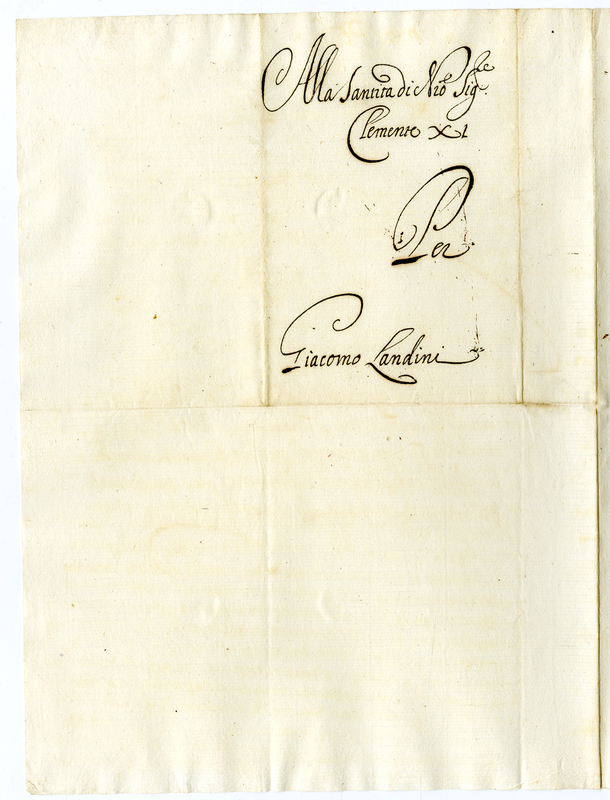 Alla Santità di N͞ro Sig.re
Clemente XI
Per
Giacomo Landini